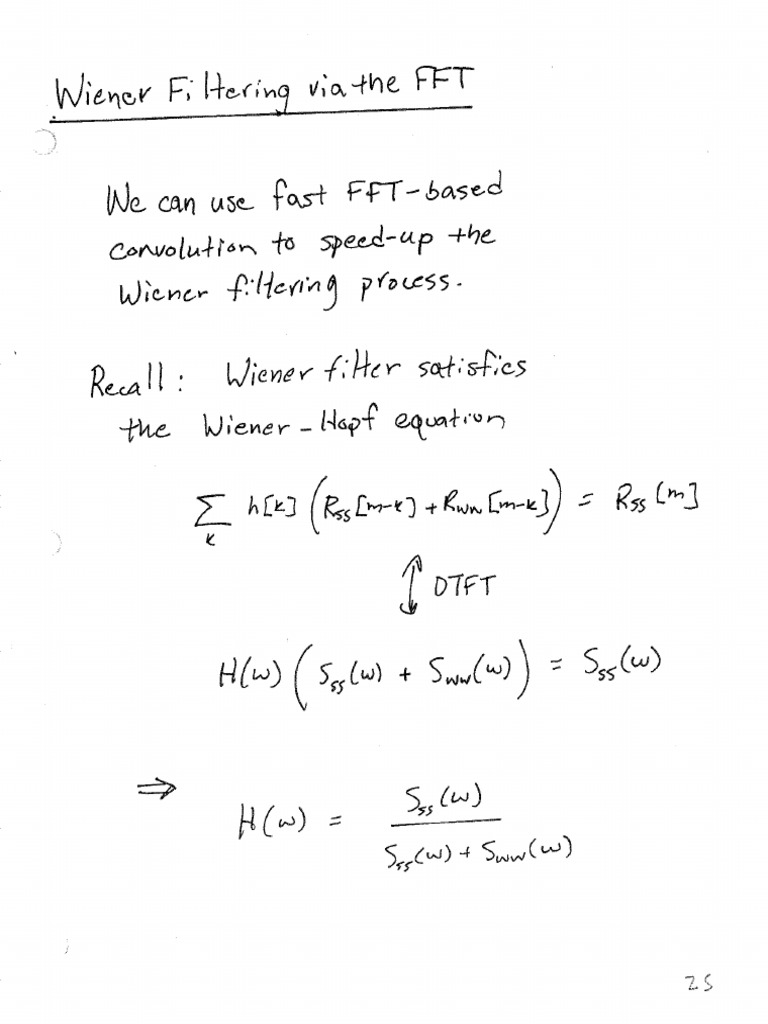 Wiener Filtering via the FFT
We can use fast FFT-based
convolution to speed-up the
Wiener filtering process.
Recall: Wiener filter satisfies
the Wiener-Hopf equation
∑_k h[k] (R_ss[m-k] + R_ww[m-k]) = R_ss[m]
↕ DTFT
H(ω) (S_ss(ω) + S_ww(ω)) = S_ss(ω)
⇒ H(ω) = S_ss(ω) / (S_ss(ω) + S_ww(ω))
25